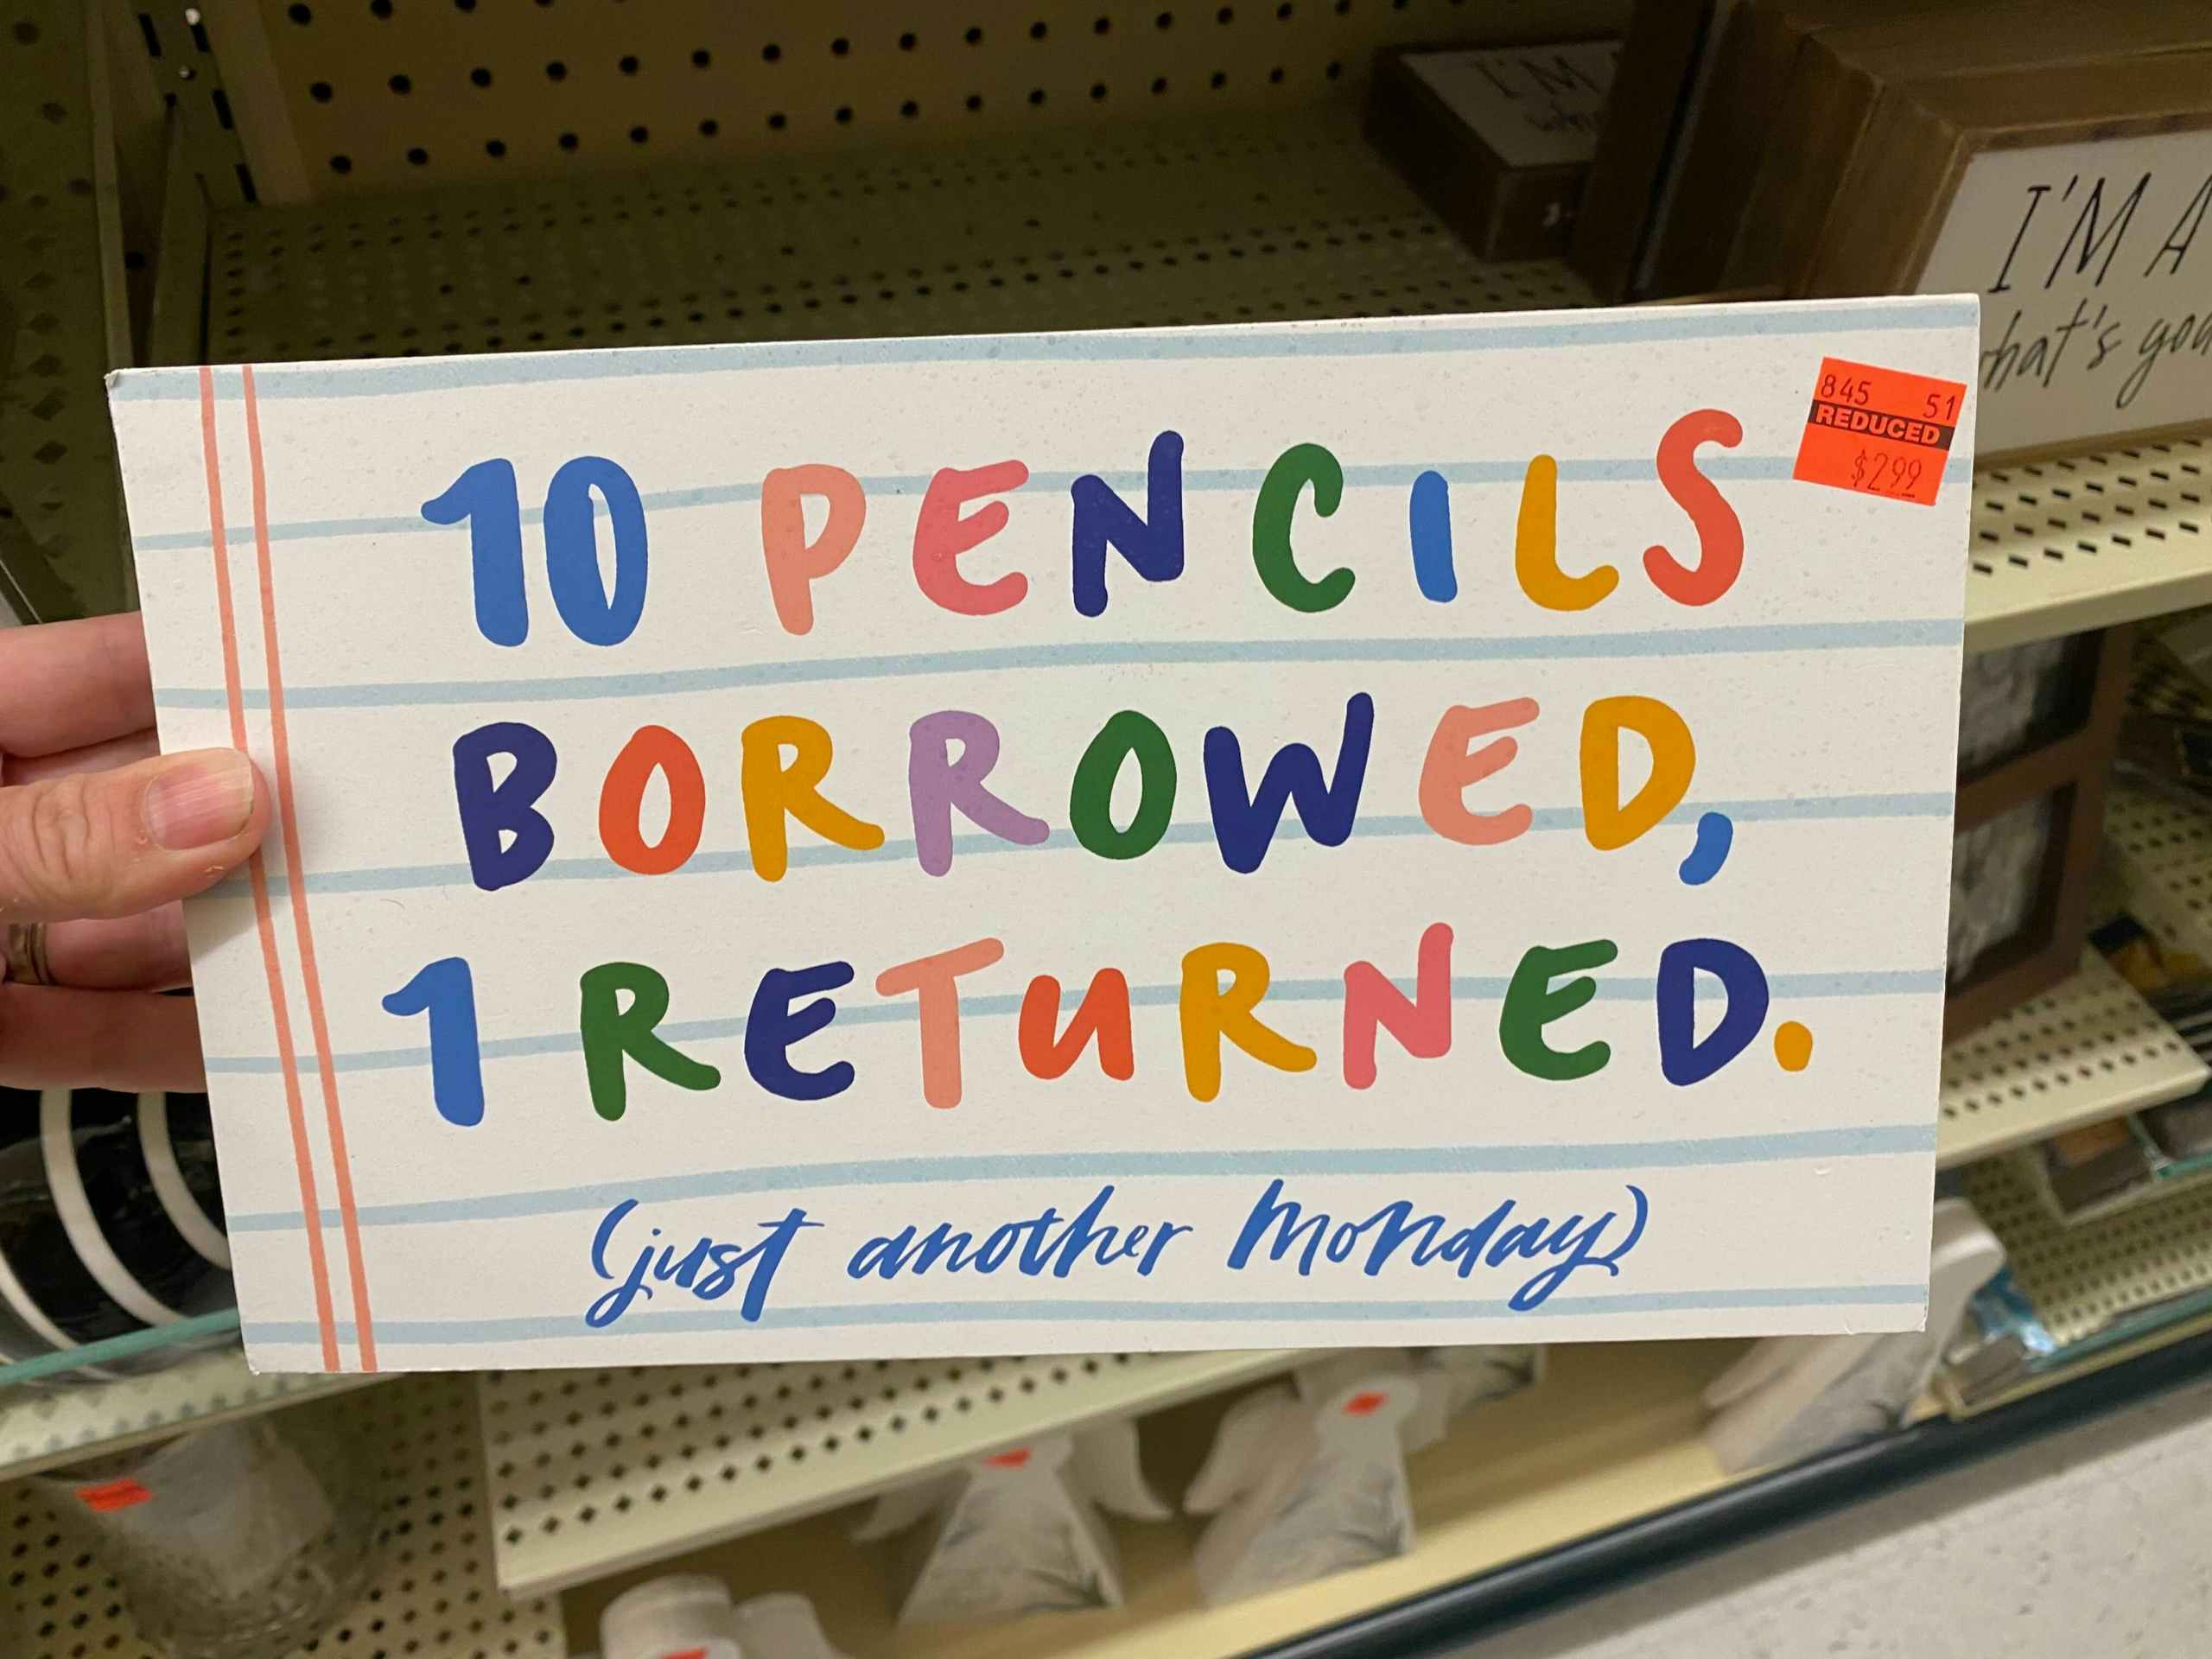 I'M
I'M A
what's you
845 51
REDUCED
$2.99
10 PENCILS
BORROWED,
1 RETURNED.
(just another Monday)